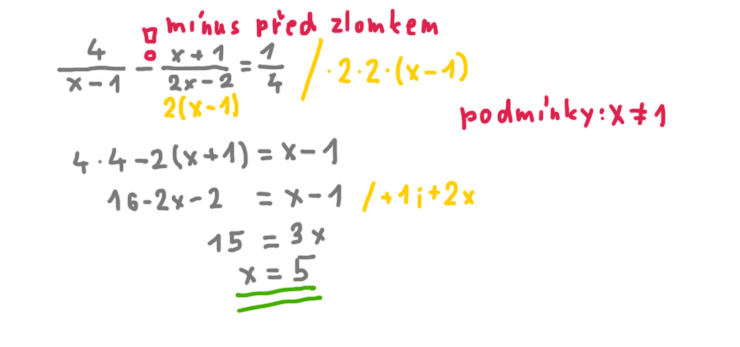 ! mínus před zlomkem
4/(x-1) - (x+1)/(2x-2) = 1/4 / ·2·2·(x-1)
2(x-1)
podmínky: x ≠ 1
4·4-2(x+1) = x-1
16-2x-2 = x-1 /+1; +2x
15 = 3x
x = 5